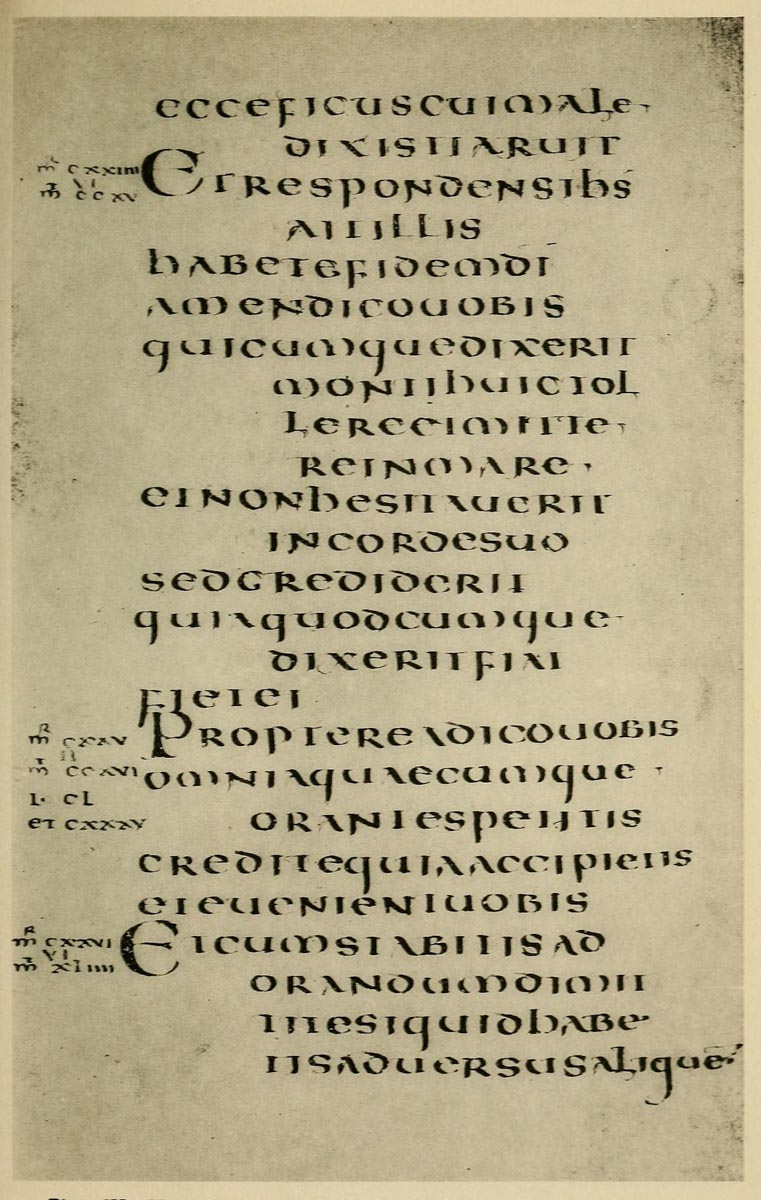 ecceficuscuimale·
dixistiaruit
m̄ R cxxiiii
Etrespondensihs
m̄ t vi ccxv
aitillis
habetefidemdi
amendicouobis
quicumquedixerit
montihuictol
lereetmitte·
reinmare·
etnonhesitauerit
incordesuo
sedcrediderit
quiaquodcumque·
dixeritfiat
fietei
m̄ R cxxv
Proptereadicouobis
m̄ t ccxvi
omniaquaecumque·
l· cl
et cxxxv
orantespetitis
creditequiaaccipietis
eteuenientuobis
m̄ R cxxvi
Etcumstabitisad
m̄ t vi xliiii
orandumdimit
titesiquidhabe·
tisaduersusalique·